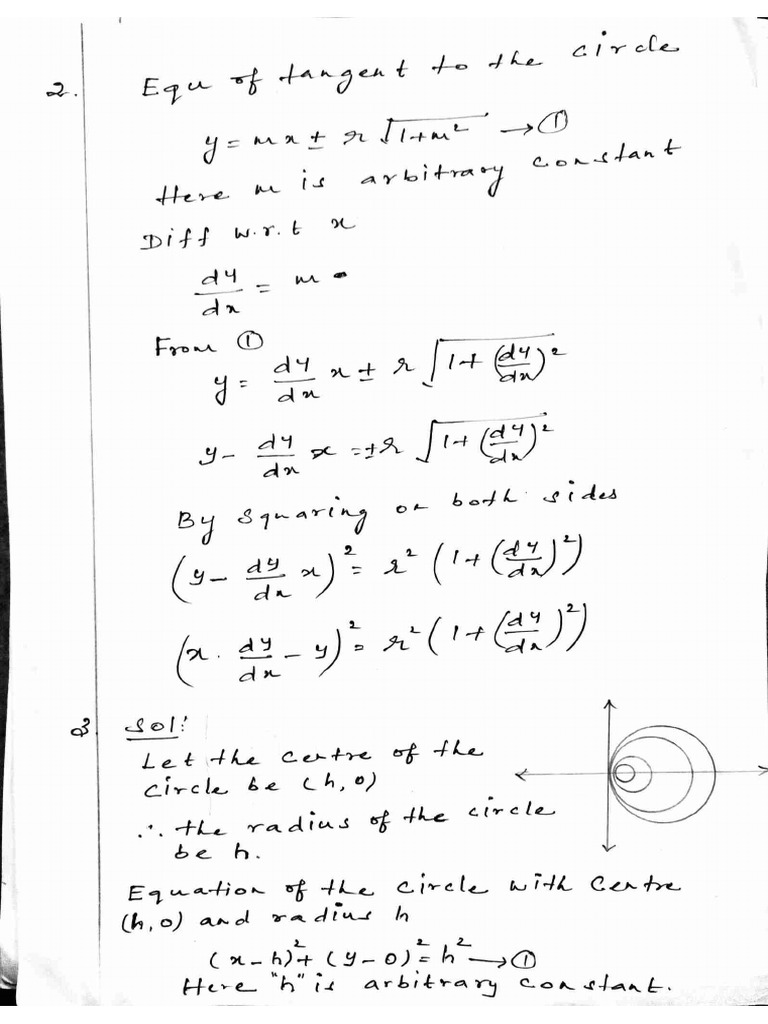 2. Equ of tangent to the circle
y = mx ± r √1+m² → ①
Here m is arbitrary constant
Diff w.r.t x
dy/dx = m
From ①
y = dy/dx x ± r √1+(dy/dx)²
y - dy/dx x = ± r √1+(dy/dx)²
By squaring on both sides
(y - dy/dx x)² = r² (1+(dy/dx)²)
(x . dy/dx - y)² = r² (1+(dy/dx)²)
3 Sol:
Let the centre of the
circle be (h,0)
∴ the radius of the circle
be h.
Equation of the circle with centre
(h,0) and radius h
(x-h)² + (y-0)² = h² → ①
Here "h" is arbitrary constant.